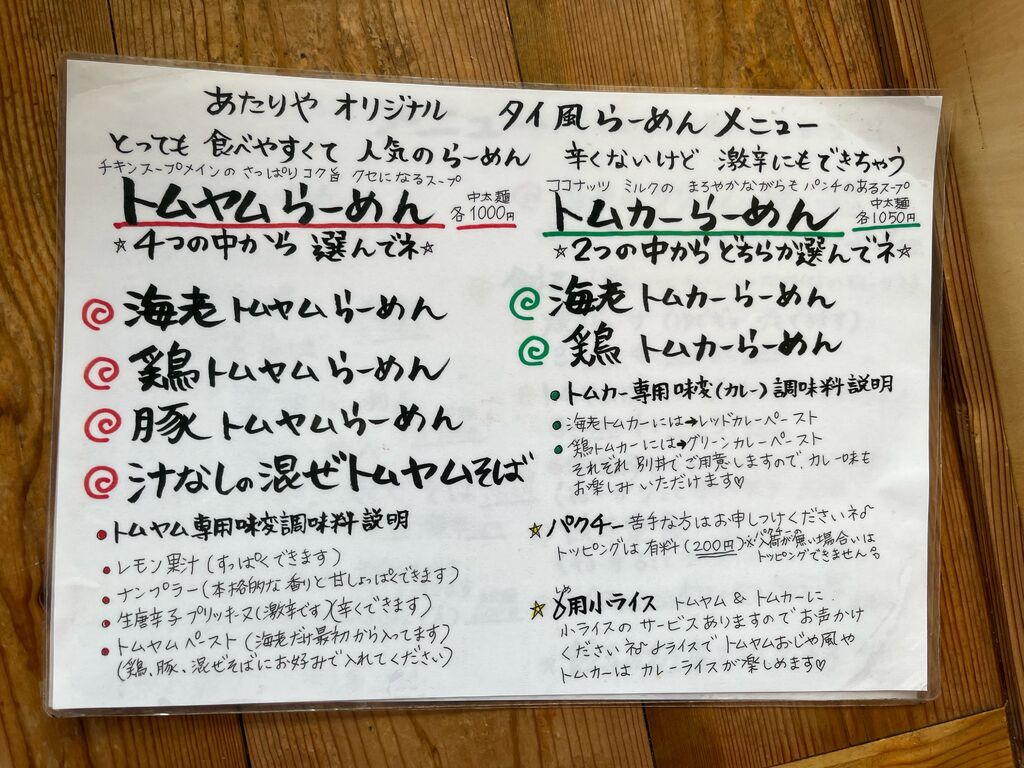 あたりや オリジナル タイ風らーめんメニュー
とっても 食べやすくて 人気のらーめん
チキンスープメインの さっぱりコク旨 クセになるスープ
トムヤムらーめん 中太麺 各1000円
☆4つの中から 選んでネ☆
海老トムヤムらーめん
鶏トムヤムらーめん
豚トムヤムらーめん
汁なしの混ぜトムヤムそば
・トムヤム専用味変調味料説明
・レモン果汁(すっぱくできます)
・ナンプラー(本格的な香りと甘じょっぱくできます)
・生唐辛子プリッキーヌ(激辛です)(辛くできます)
・トムヤムペースト(海老だけ最初から入ってます)
(鶏、豚、混ぜそばにお好みで入れてください)
辛くないけど 激辛にもできちゃう
ココナッツ ミルクの まろやかながらも パンチのあるスープ
トムカーらーめん 中太麺 各1050円
☆2つの中から どちらか選んでネ☆
海老トムカーらーめん
鶏 トムカーらーめん
・トムカー専用味変(カレー)調味料説明
・海老トムカーには→レッドカレーペースト
・鶏トムカーには→グリーンカレーペースト
それぞれ 別丼でご用意しますので、カレー味も
お楽しみいただけます♡
☆パクチー苦手な方はお申しつけくださいネ♪
トッピングは有料(200円)※パクチー入荷が無い場合いは
トッピングできません。
☆〆用小ライス トムヤム&トムカーに
小ライスのサービスありますのでお声かけ
くださいネ♪♪ライスで トムヤムおじや風や
トムカーは カレーライスが楽しめます♡